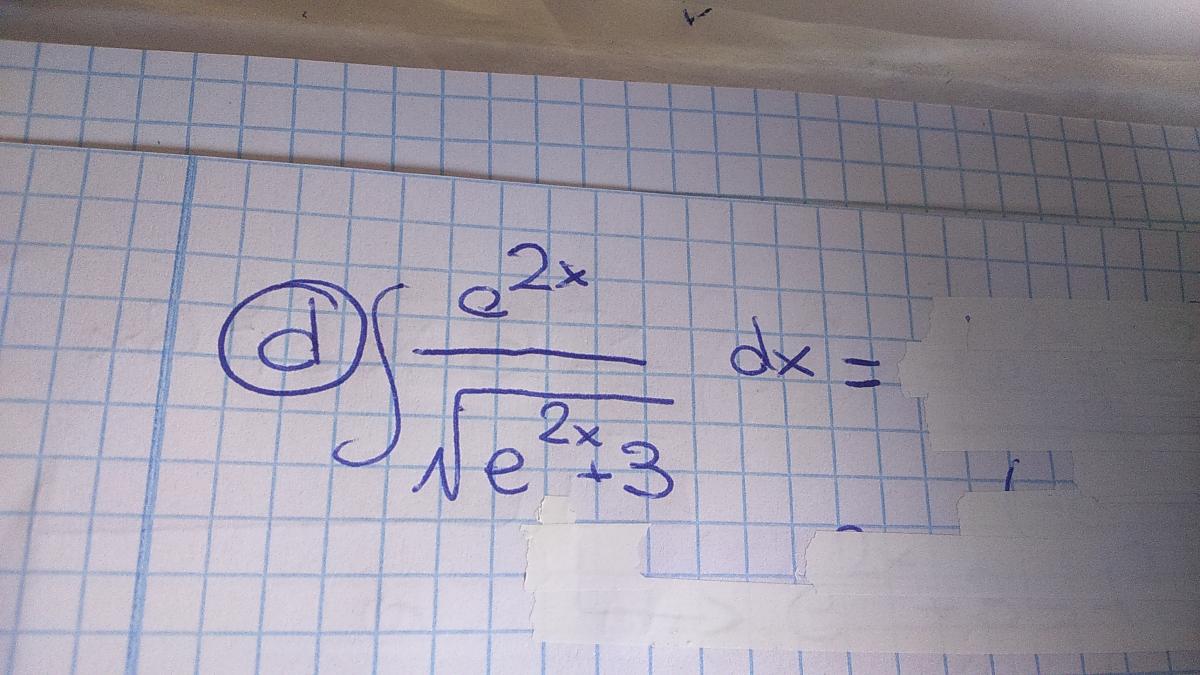 d ∫ e^{2x} / √(e^{2x}+3) dx =